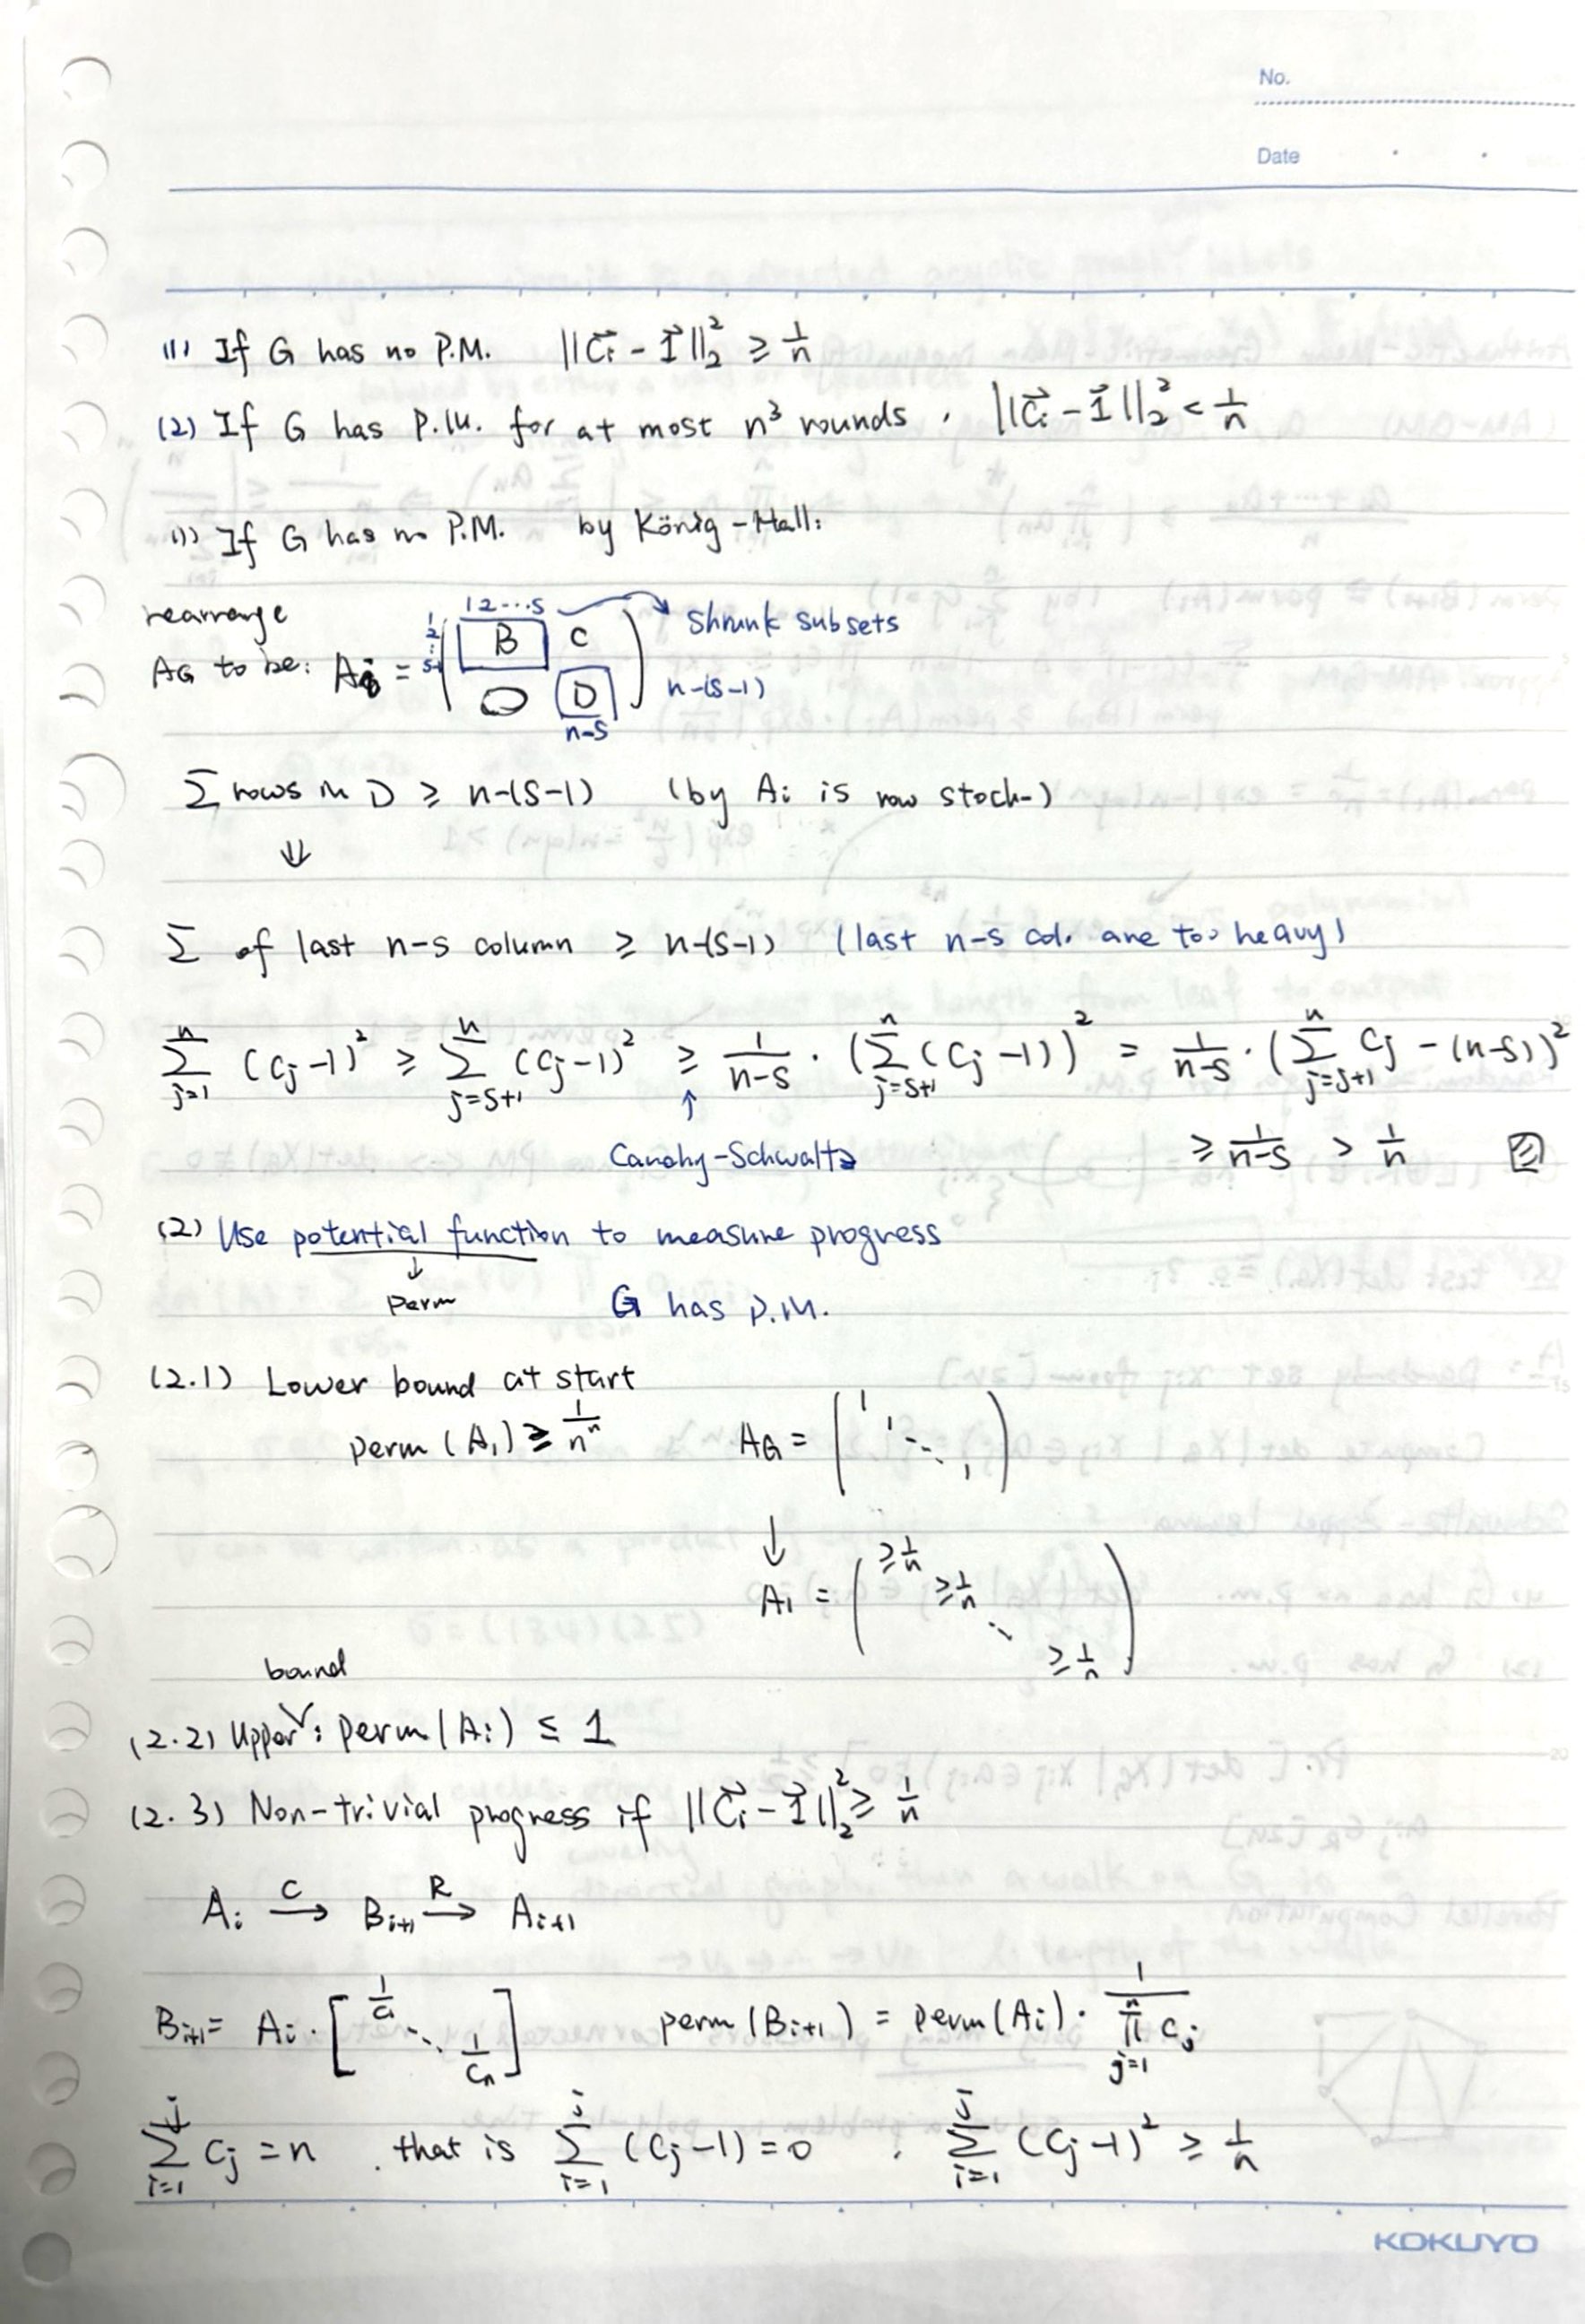 No.
Date
(1) If G has no P.M. ||C⃗i - 1⃗||₂² ≥ 1/n
(2) If G has P.M. for at most n³ rounds, ||C⃗i - 1⃗||₂² < 1/n
(1) If G has no P.M. by König-Hall:
rearrange
AG to be: Ai = ( B C O D )
1 2 ... s
1 2 : s-1
Shrunk subsets
n-(s-1)
n-s
Σ rows in D ≥ n-(s-1) (by Ai is row stoch-)
⇓
Σ of last n-s column ≥ n-(s-1) (last n-s col. are too heavy)
Σ_{j=1}^{n} (Cj-1)² ≥ Σ_{j=s+1}^{n} (Cj-1)² ≥ 1/(n-s) · (Σ_{j=s+1}^{n} (Cj-1))² = 1/(n-s) · (Σ_{j=s+1}^{n} Cj - (n-s))²
↑
Cauchy-Schwaltz ≥ 1/(n-s) > 1/n
(2) Use potential function to measure progress
↓
perm G has P.M.
(2.1) Lower bound at start
perm (A₁) ≥ 1/nⁿ AG = ( 1 1 ⋱ 1 )
↓
A₁ = ( ≥1/n ≥1/n ⋱ ≥1/n )
bound
(2.2) Upper ∨: perm(Ai) ≤ 1
(2.3) Non-trivial progress if ||C⃗i - 1⃗||₂² ≥ 1/n
Ai →C Bi+1 →R Ai+1
Bi+1 = Ai · [ 1/c₁ ⋱ 1/cn ] perm (Bi+1) = perm(Ai) · 1/∏_{j=1}^{n} cj
Σ_{i=1}^{j} Cj = n , that is Σ_{i=1}^{j} (Cj-1) = 0 , Σ_{i=1}^{j} (Cj-1)² ≥ 1/n
KOKUYO